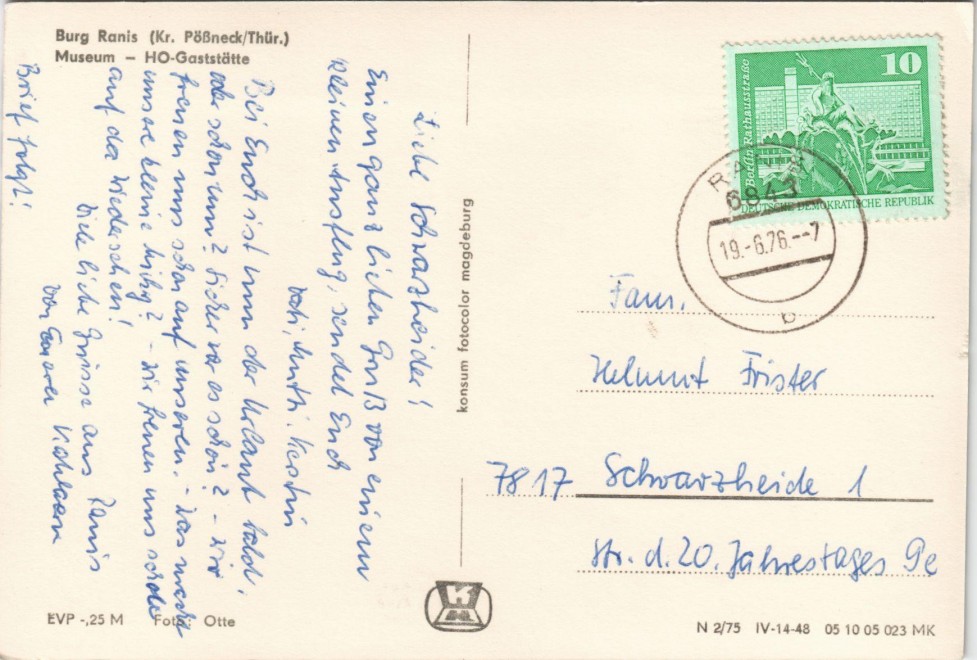 Burg Ranis (Kr. Pößneck/Thür.)
Museum – HO-Gaststätte
Liebe Schwarzheider!
Einen ganz lieben Gruß von einem
kleinen Ausflug, sendet Euch
Vati, Mutti, Kerstin
Bei Euch ist nun der Urlaub bald,
oder schon um? Sicher war es schön? – Wir
freuen uns schon auf unseren. – Was macht
unsere kleine? – Wir freuen uns schon
auf das Wiedersehen!
Viele liebe Grüsse aus Ranis
von Eueren
Brief folgt!
EVP -,25 M Foto: Otte
konsum fotocolor magdeburg
K
M
10
Berlin Rathausstraße
DEUTSCHE DEMOKRATISCHE REPUBLIK
RANIS
6843
19.-6.76.--7
b
Fam.
Helmut Frister
7817 Schwarzheide 1
Str. d. 20. Jahrestages 9c
N 2/75 IV-14-48 05 10 05 023 MK